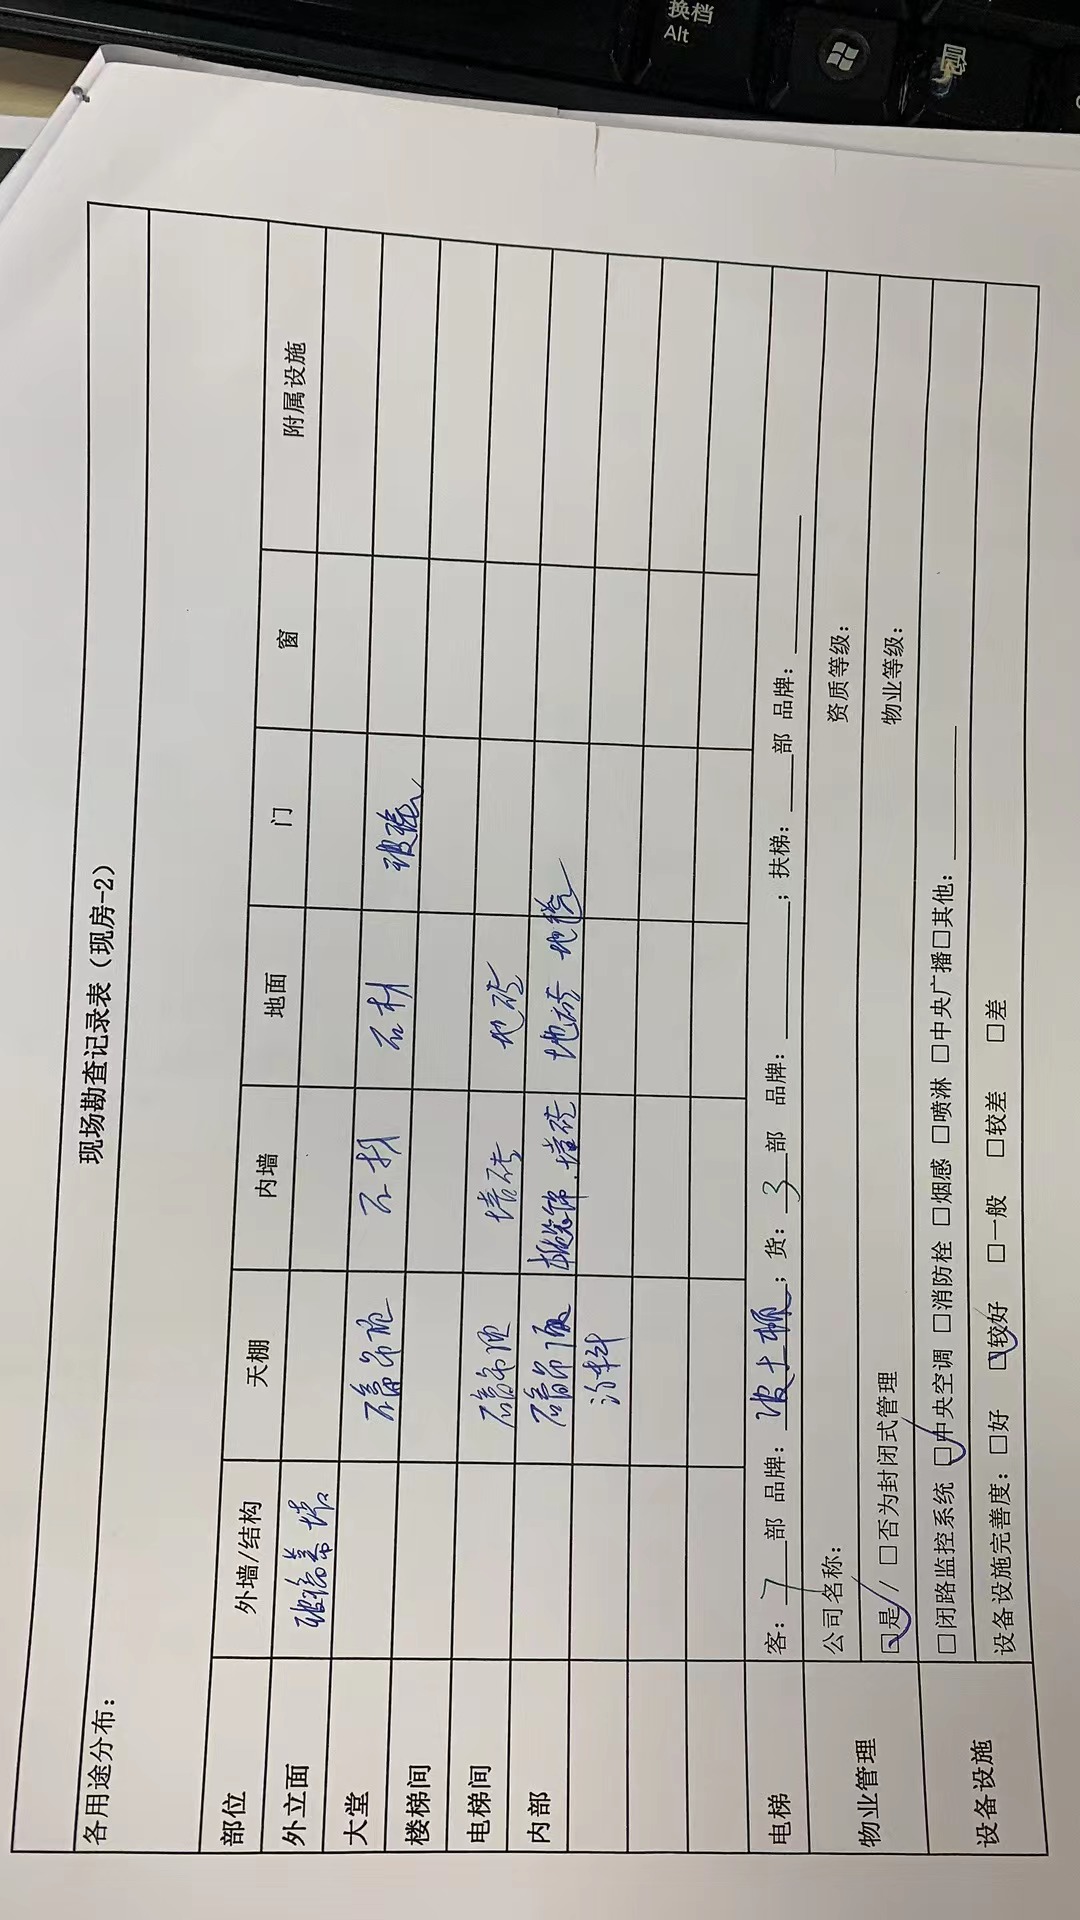 换档
Alt
现场勘查记录表（现房-2）
各用途分布：
部位 外墙/结构 天棚 内墙 地面 门 窗 附属设施
外立面 玻璃幕墙
大堂 石膏吊顶 石材 石材 玻璃
楼梯间
电梯间 石膏吊顶 墙砖 地砖
内部 石膏吊顶 墙砖 地砖 地毯
涂料
电梯 客：7部 品牌：波士顿；货：3部 品牌：____；扶梯：____部 品牌：____
物业管理 公司名称： 资质等级：
☑是/□否为封闭式管理 物业等级：
设备设施 □闭路监控系统 ☑中央空调 □消防栓 □烟感 □喷淋 □中央广播□其他：____
设备设施完善度：□好 ☑较好 □一般 □较差 □差